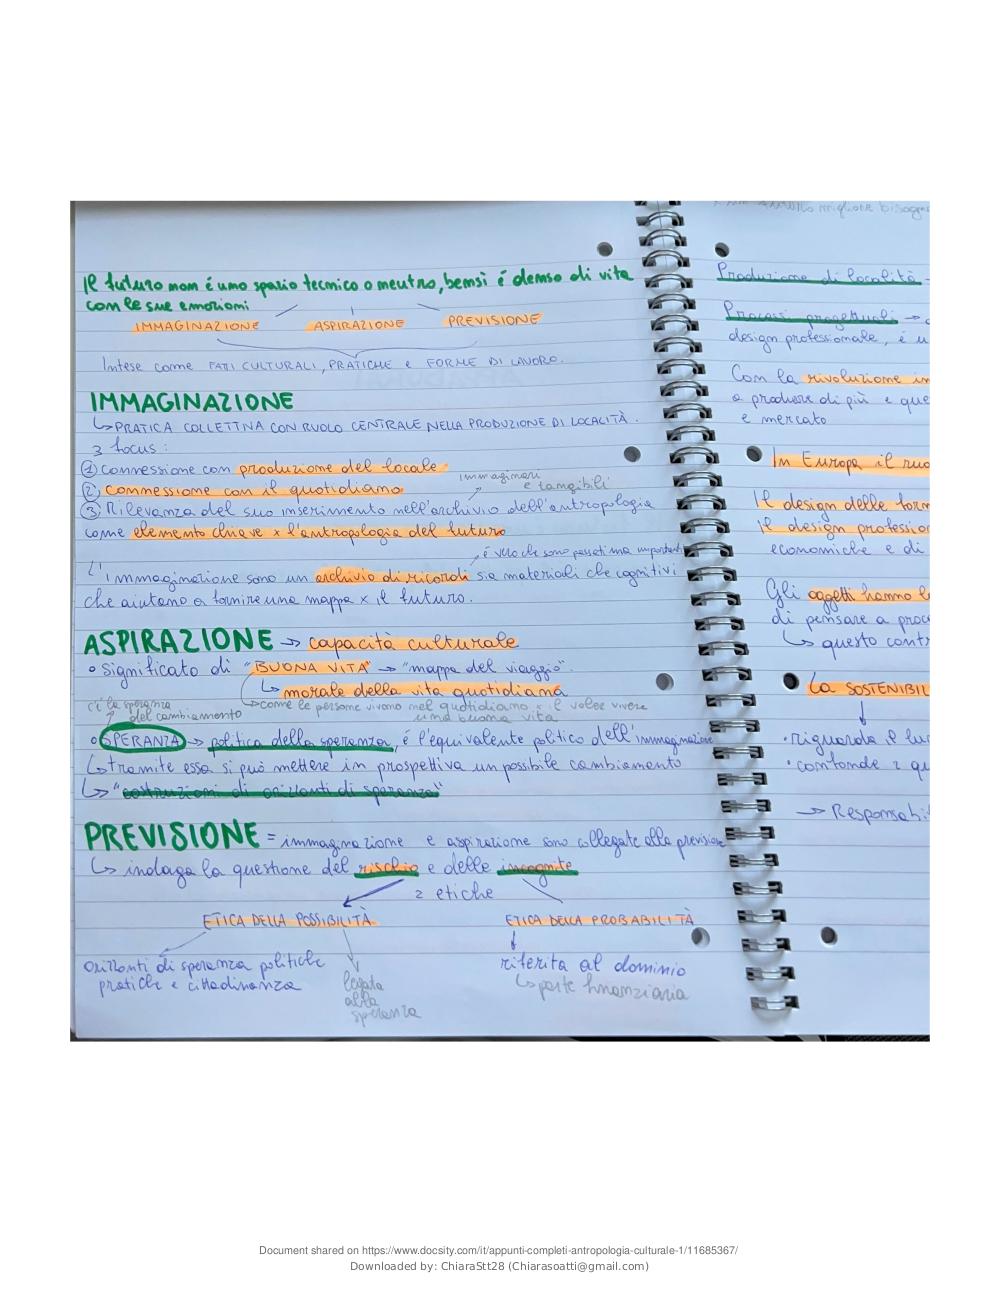 Il futuro non é uno spazio tecnico o neutro, bensì é denso di vita
con le sue emozioni
IMMAGINAZIONE ASPIRAZIONE PREVISIONE
Intese come FATI CULTURALI, PRATICHE e FORME DI LAVORO.
IMMAGINAZIONE
↳ PRATICA COLLETTINA CON RUOLO CENTRALE NELLA PRODUZIONE DI LOCALITÀ.
3 focus:
① connessione con produzione del locale
② connessione con il quotidiano
immaginari
e tangibili
③ Rilevanza del suo inserimento nell'archivio dell'antropologia
come elemento chiave x l'antropologia del futuro
é vero che sono passati ma importanti
L'immaginazione sono un archivio di ricordi sia materiali che cognitivi
che aiutano a fornire una mappa x il futuro.
ASPIRAZIONE → capacità culturale
• Significato di "BUONA VITA" → "mappa del viaggio"
↳ morale della vita quotidiana
↳ come le persone vivono nel quotidiano x il voler vivere
una buona vita
c'é la speranza
del cambiamento
• SPERANZA → politica della speranza, é l'equivalente politico dell'immaginazione
↳ tramite essa si può mettere in prospettiva un possibile cambiamento
↳ "costruzioni di orizzonti di speranza"
PREVISIONE = immaginazione e aspirazione sono collegate alla previsione
↳ indaga la questione del rischio e delle incognite
2 etiche
ETICA DELLA POSSIBILITÀ ETICA DELLA PROBABILITÀ
orizzonti di speranza politiche
pratiche e cittadinanza
legata
alla
speranza
riferita al dominio
↳ parte finanziaria
migliore bisogn
Produzione di località -
Processi progettuali →
design professionale, é u
Con la rivoluzione in
a produrre di più e que
e mercato
In Europa il ruo
Il design delle for
il design professio
economiche e di
Gli oggetti hanno l
di pensare a proc
↳ questo cont
La SOSTENIBIL
• riguarda il lu
• confonde 2 qu
→ Responsabi
Document shared on https://www.docsity.com/it/appunti-completi-antropologia-culturale-1/11685367/
Downloaded by: ChiaraStt28 (Chiarasoatti@gmail.com)